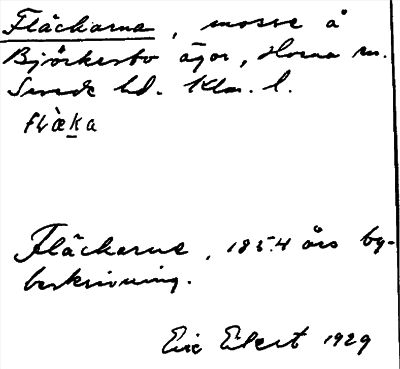 Fläckarna, mosse å
Björkesbo ägor, Horna sn.
Sevede hd. Klm. l.
flæ̀ka
Fläckarne, 1854 års by-
beskrivning.
Eric Elert 1929